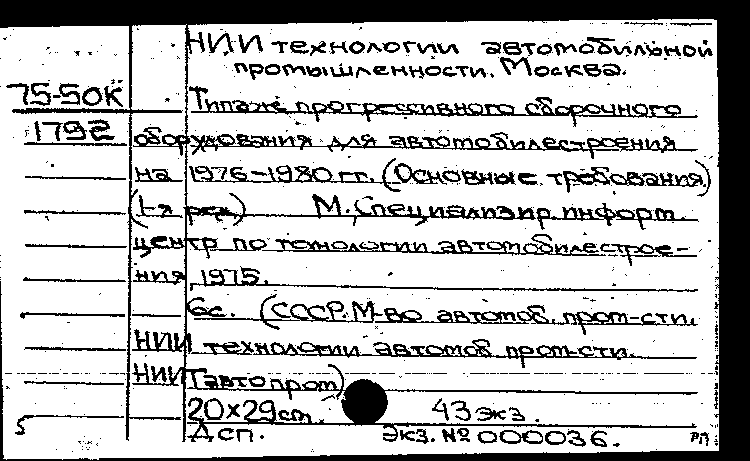 НИИ технологии автомобильной
промышленности. Москва.
75-50К
Типаж прогрессивного сборочного
1792
оборудования для автомобилестроения
на 1976-1980 гг. (Основные требования)
(1-я ред) М. Специализир. информ.
центр по технологии автомобилестрое-
ния, 1975.
6с. (СССР. М-во автомоб. пром-сти.
НИИ технологии автомоб. пром-сти.
НИИТавтопром)
20х29см. 43 экз.
Дсп. Экз. № 000036.
5
РП